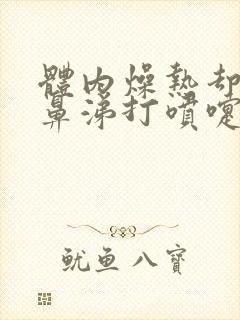 體內燥熱却
鼻涕打噴嚏
魷鱼八寶